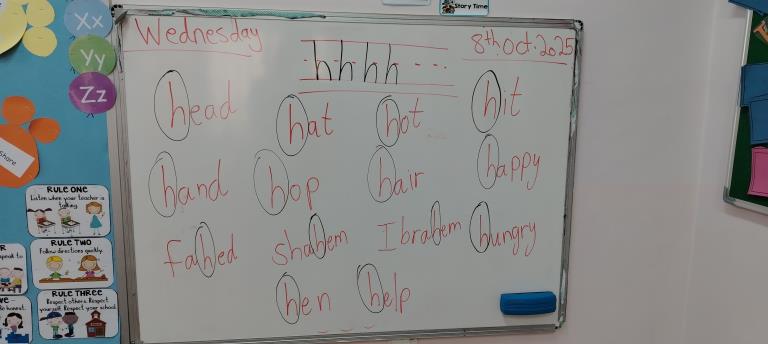 Story Time
Xx
Yy
Zz
Share
Wednesday
hhhh ...
8th Oct. 2025
head hat hot hit
hand hop hair happy
fahed shahem Ibrahem hungry
hen help
RULE ONE
Listen when your teacher is
talking.
RULE TWO
Follow directions quickly.
RULE THREE
Respect others. Respect
yourself. Respect your school.